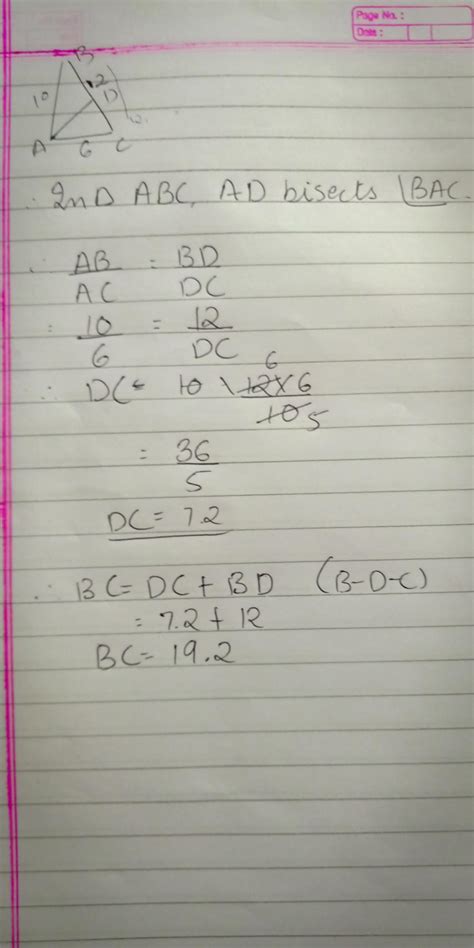 Page No. :
Date :
B
10 12 D
A 6 C
∴ In Δ ABC, AD bisects ∠BAC.
∴ AB/AC = BD/DC
: 10/6 = 12/DC
∴ DC = 10 \ 12×6/10 6 5
= 36/5
DC = 7.2
∴ BC = DC + BD (B-D-C)
= 7.2 + 12
BC = 19.2